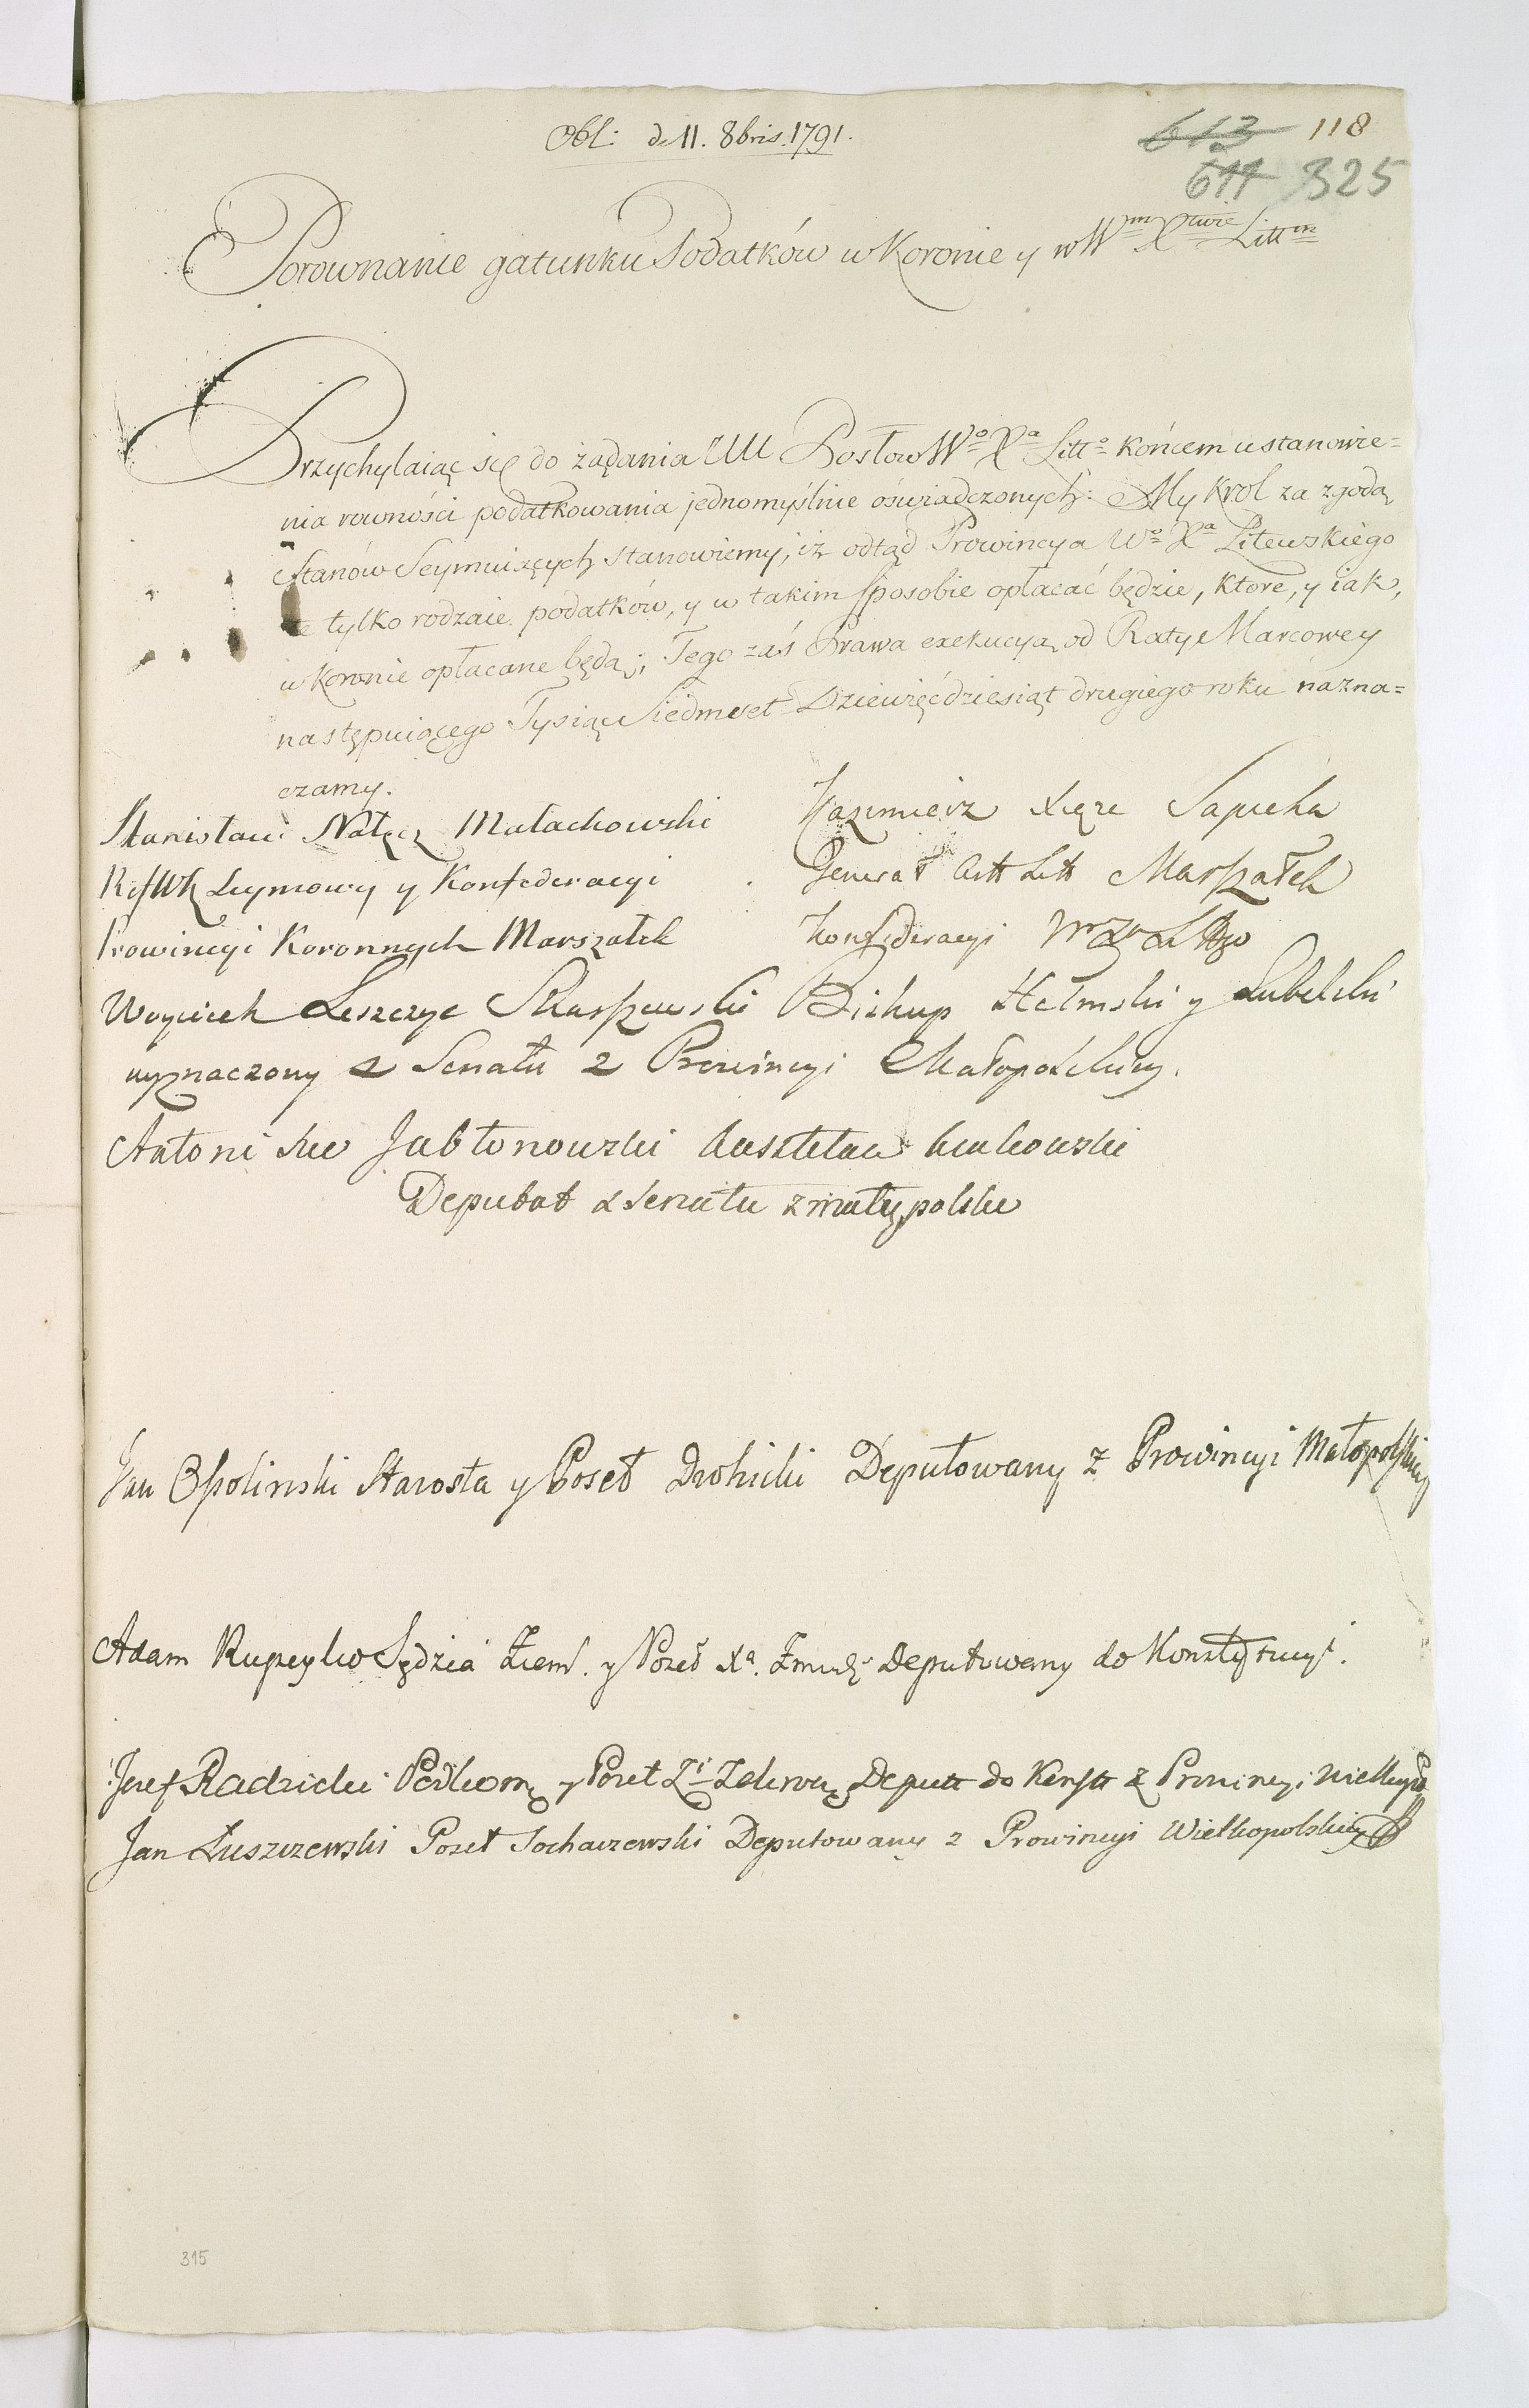 Obl: d. 11. 8bris. 1791.
613 118
611 325
Porownanie gatunku Podatków w Koronie y w Wm Xtwie Littm
Przychylaiąc się do żądania UU Posłow Wo Xa Litto końcem ustanowie=
nia rowności podatkowania jednomyślnie oświadczonych: My Krol za zgodą
Stanów Seymuiących stanowiemy, iż odtąd Prowincya Wo Xa Litewskiego
te tylko rodzaie podatków, y w takim sposobie opłacać będzie, ktore, y iak,
w koronie opłacane będą; Tego zaś Prawa exekucyą od Raty Marcowey
następuiącego Tysiąc Siedmset Dziewięćdziesiąt drugiego roku nazna=
czamy.
Stanisław Nałęcz Małachowski
Ref WK Seymowy y Konfederacyi
Prowincyi Koronnych Marszałek
Kazimierz Xiąże Sapieha
Generał Artt Litt Marszałek
Konfederacyi
Woyciech Leszczyc Skarszewski Biskup Chełmski y Lubelski
wyznaczony z Senatu z Prowincyi Małopolskiey.
Antoni Xże Jabłonowski Kasztelan Krakowski
Deputat z Senatu z małeypolski
Jan Ossolinski Starosta y Poseł Drohicki Deputowany z Prowincyi Małopolskiey
Adam Rupeyko Sędzia Ziem. y Poseł Xa. Zmudz. Deputowany do Konstytucyi.
Jozef Radzicki Podkom y Poseł Zi Zakrocz Deputt do Konstt z Prowincyi Wielkopol
Jan Łuszczewski Poseł Sochaczewski Deputowany z Prowincyi Wielkopolskiey
315